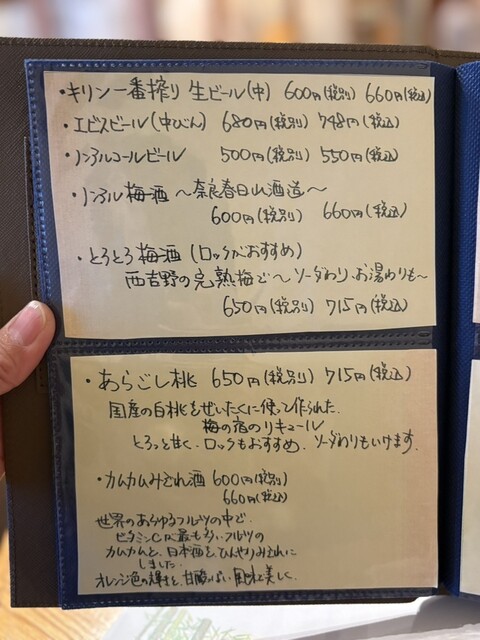 ・キリン一番搾り 生ビール(中) 600円(税別) 660円(税込)
・エビスビール(中びん) 680円(税別) 748円(税込)
・ノンアルコールビール 500円(税別) 550円(税込)
・ノンアル梅酒 〜奈良春日山酒造〜
600円(税別) 660円(税込)
・とろとろ梅酒 (ロックがおすすめ)
西吉野の完熟梅で〜ソーダわり、お湯わりも〜
650円(税別) 715円(税込)
・あらごし桃 650円(税別) 715円(税込)
国産の白桃をぜいたくに使って作られた
梅の宿のリキュール
とろっと甘く、ロックもおすすめ、ソーダわりもいけます。
・カムカムみぞれ酒 600円(税別)
660円(税込)
世界のあらゆるフルーツの中で、
ビタミンCが最も多いフルーツの
カムカムと、日本酒を、ひんやりみぞれに
しました。
オレンジ色の輝きと、甘酸っぱい風味で美しく、